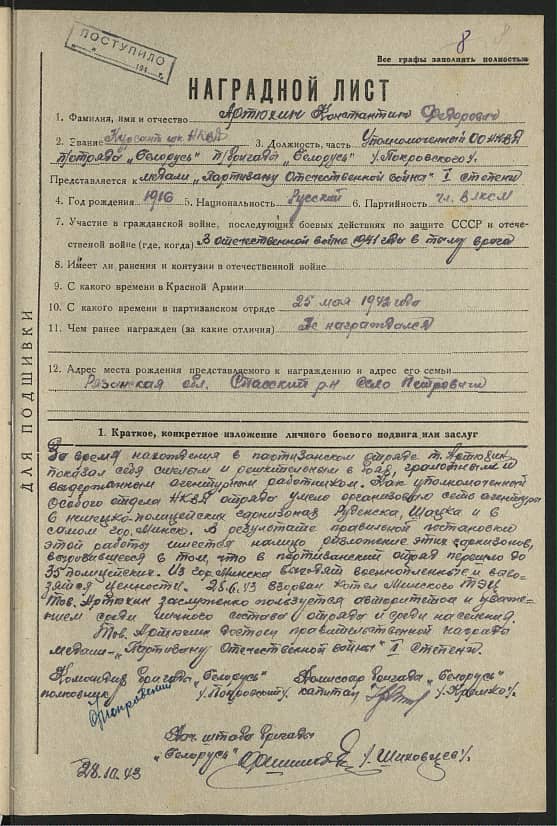 8 8
ПОСТУПИЛО
194
Все графы заполнять полностью
НАГРАДНОЙ ЛИСТ
1. Фамилия, имя и отчество Артюхин Константин Федорович
2. Звание Курсант шк. НКВД 3. Должность, часть Уполномоченный ОО НКВД
п/отряда „Беларусь" п/бригада „Беларусь" /Покровского/.
Представляется к медали „Партизану Отечественной война" I степени
4. Год рождения 1916 5. Национальность Русский 6. Партийность чл. ВЛКСМ
7. Участие в гражданской войне, последующих боевых действиях по защите СССР и отече-
ственой войне (где, когда) В отечественной войне 1941 года в тылу врага
8. Имеет ли ранения и контузии в отечественной войне
9. С какого времени в Красной Армии
10. С какого времени в партизанском отряде 25 мая 1942 года
11. Чем ранее награжден (за какие отличия) Не награждался
12. Адрес места рождения представляемого к награждению и адрес его семьи
Рязанская обл. Спасский р-н село Петровичи
ДЛЯ ПОДШИВКИ
1. Краткое, конкретное изложение личного боевого подвига или заслуг
За время нахождения в партизанском отряде т. Артюхин
показал себя смелым и решительным в боях, грамотным и
выдержанным агентурным работником. Как уполномоченный
Особого отдела НКВД отряда умело организовал сеть агентура
в немецко-полицейских гарнизонах Руденска, Шацка и в
самом гор. Минск. В результате правильной постановки
этой работы имеется налицо разложение этих гарнизонов,
выразившееся в том, что в партизанский отряд перешло до
35 полицейских. Из гор. Минска выводят военнопленных и выво-
зятся ценности. 28.6.43 взорван котел Минского ТЭЦ
Тов. Артюхин заслуженно пользуется авторитетом и уваже-
нием среди личного состава отряда и среди населения.
Тов. Артюхин достоин правительственной награда
медали-„Партизану Отечественной войны" II степени.
Командир бригада „Беларусь" Комиссар бригада „Беларусь"
полковник /Покровский/ капитан /Хромко/.
Нач. штаба бригады
„Беларусь" /Шиковцев/.
28.10.43